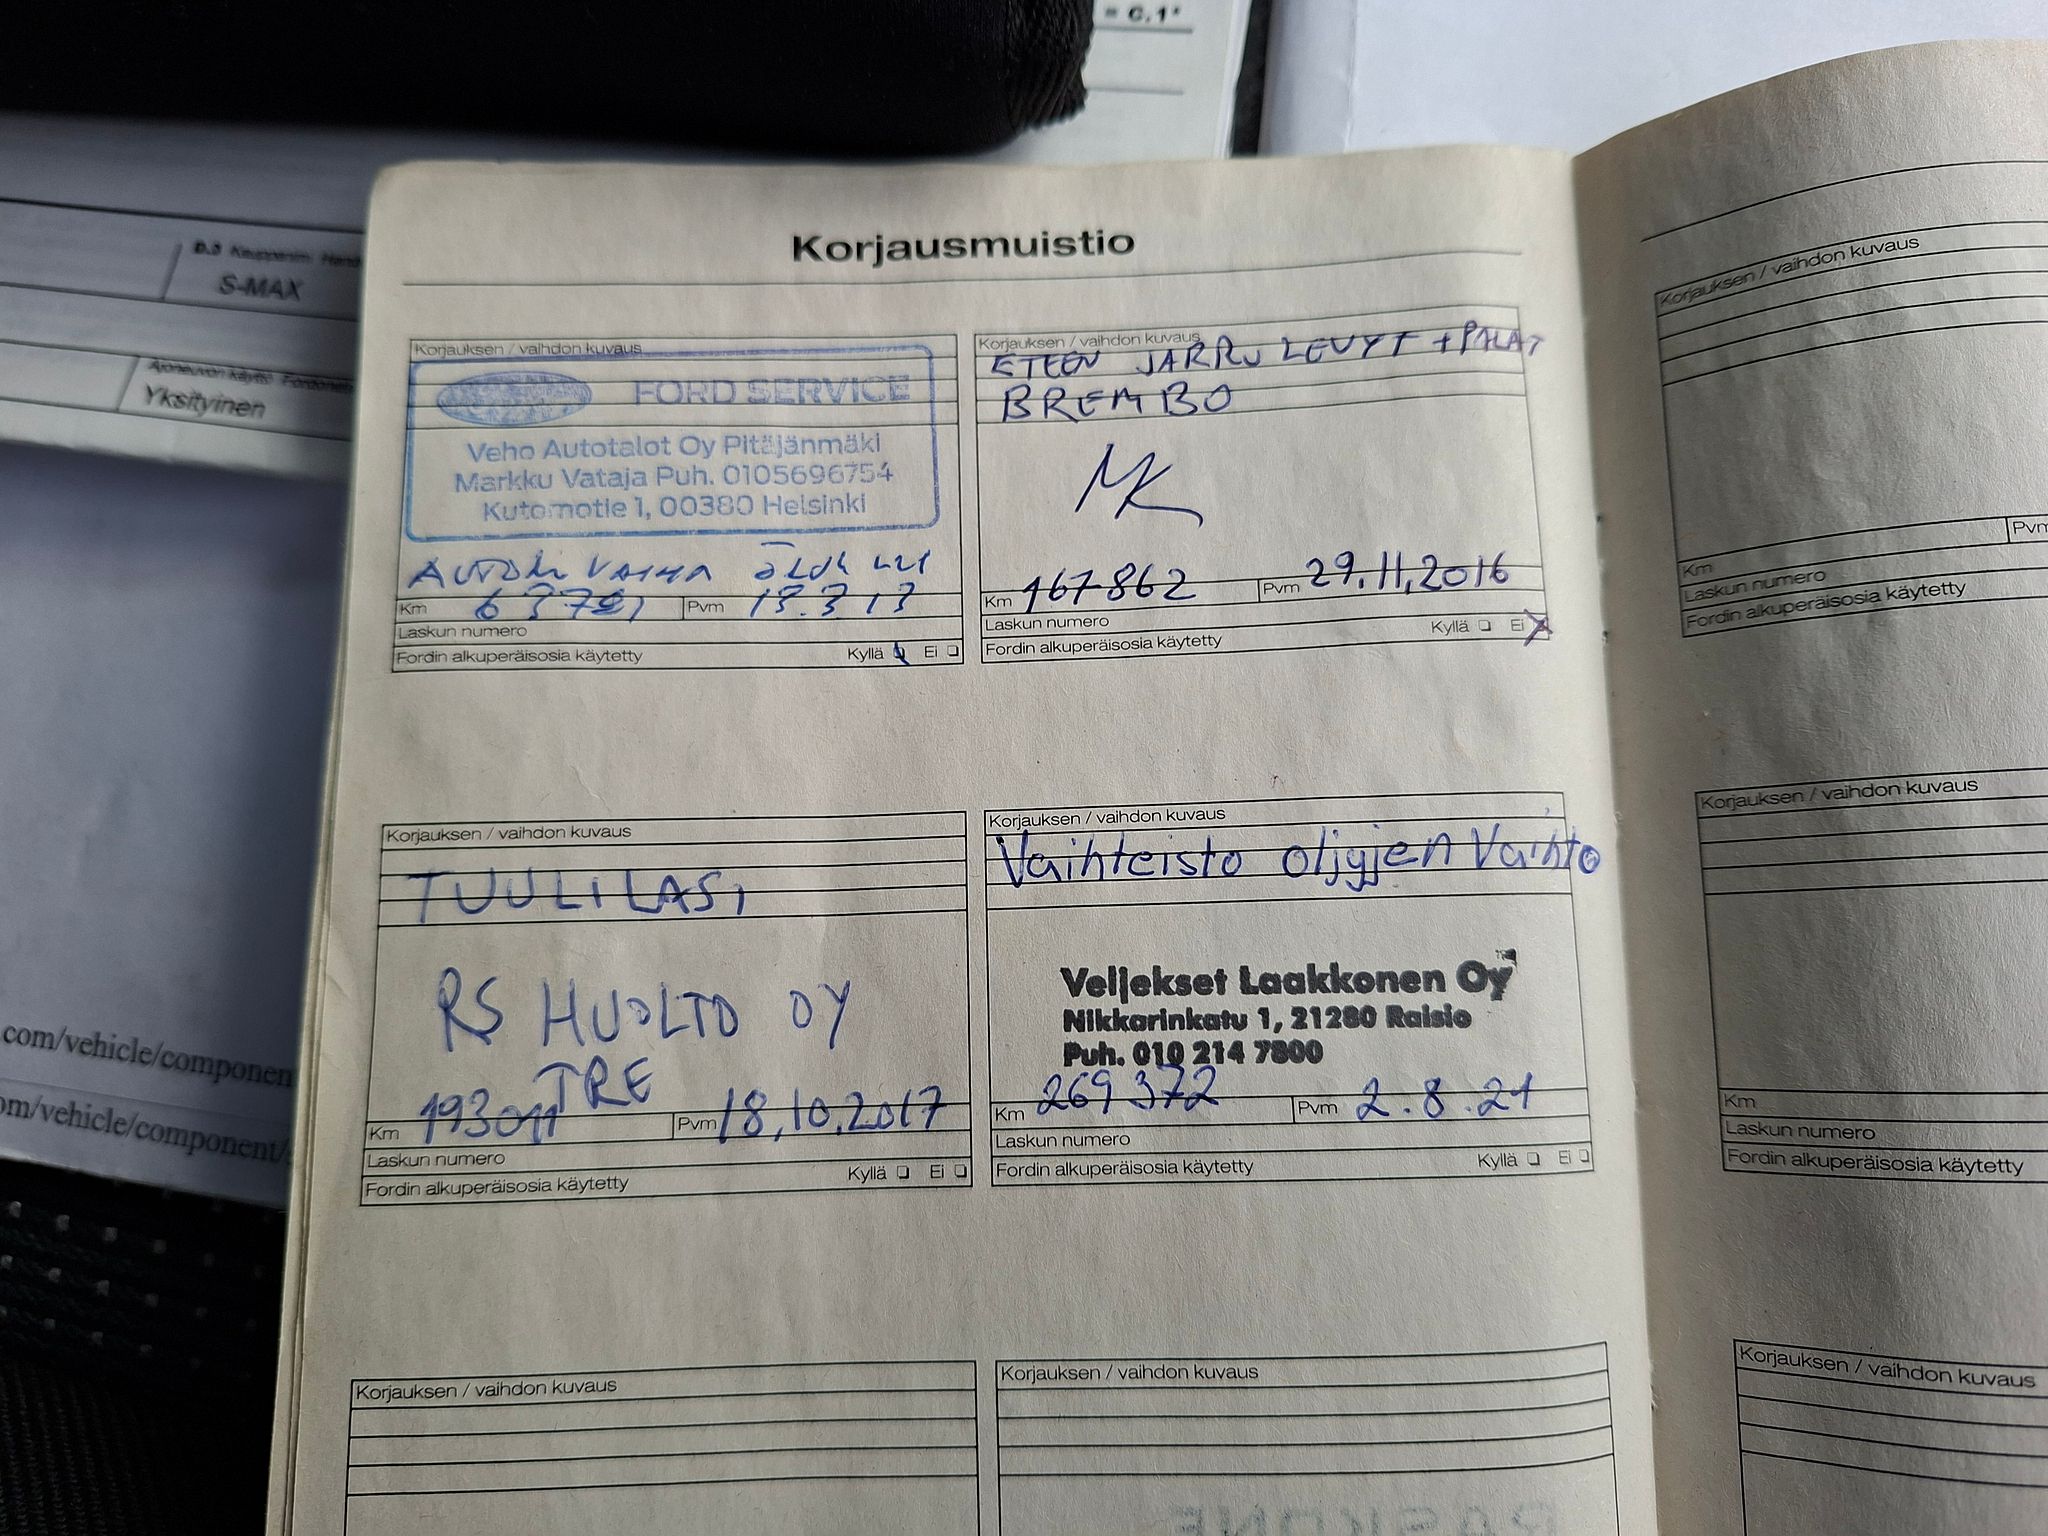 = C.1*
D.3
S-MAX
Yksityinen
com/vehicle/componen
om/vehicle/component/
Korjausmuistio
Korjauksen / vaihdon kuvaus
FORD SERVICE
Veho Autotalot Oy Pitäjänmäki
Markku Vataja Puh. 0105696754
Kutomotie 1, 00380 Helsinki
Km Pvm 13.3.13
Laskun numero
Fordin alkuperäisosia käytetty Kyllä Ei
Korjauksen / vaihdon kuvaus
ETEEN JARRU LEVYT + PALAT
BREMBO
MK
Km 167862 Pvm 29.11.2016
Laskun numero
Fordin alkuperäisosia käytetty Kyllä Ei
Korjauksen / vaihdon kuvaus
TUULILASI
RS HUOLTO OY
TRE
Km 193011 Pvm 18.10.2017
Laskun numero
Fordin alkuperäisosia käytetty Kyllä Ei
Korjauksen / vaihdon kuvaus
Vaihteisto oljyjen Vaihto
Veljekset Laakkonen Oy
Nikkarinkatu 1, 21280 Raisio
Puh. 010 214 7800
Km 269372 Pvm 2.8.21
Laskun numero
Fordin alkuperäisosia käytetty Kyllä Ei
Korjauksen / vaihdon kuvaus
Korjauksen / vaihdon kuvaus
Korjauksen / vaihdon kuvaus
Pvm
Km
Laskun numero
Fordin alkuperäisosia käytetty
Korjauksen / vaihdon kuvaus
Km
Laskun numero
Fordin alkuperäisosia käytetty
Korjauksen / vaihdon kuvaus